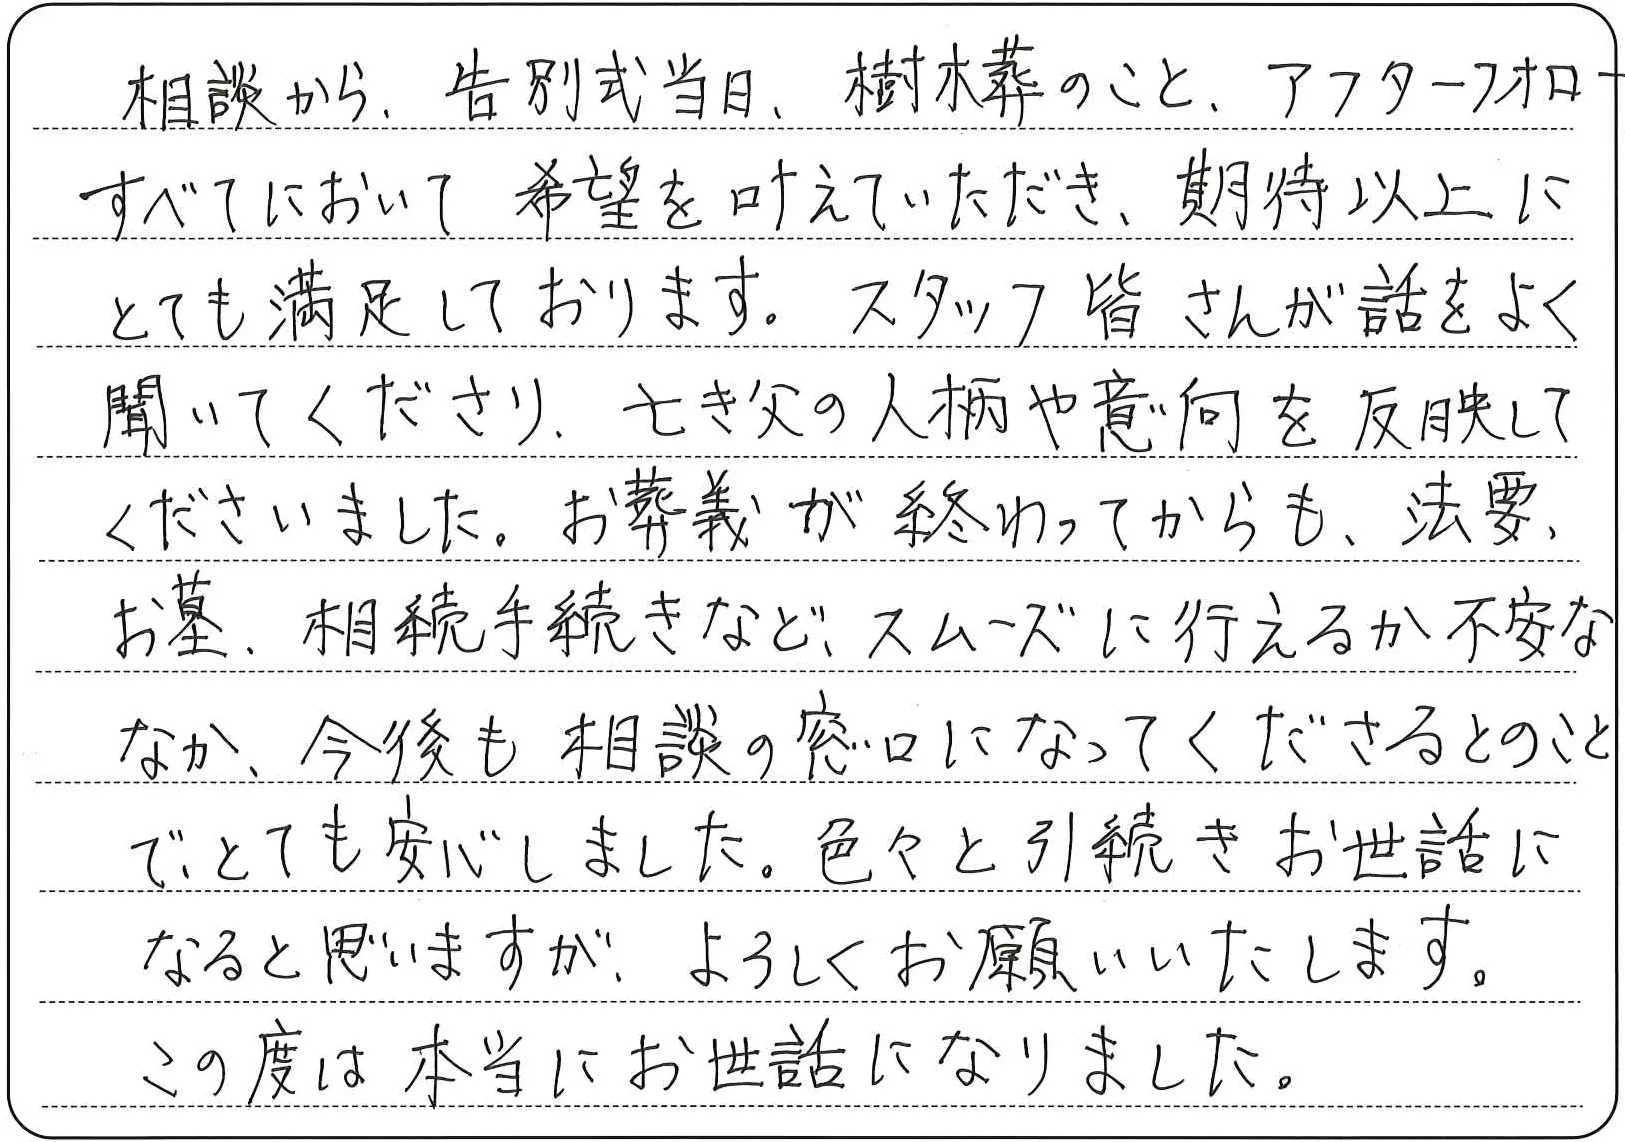 相談から、告別式当日、樹木葬のこと、アフターフォロー
すべてにおいて希望を叶えていただき、期待以上に
とても満足しております。スタッフ皆さんが話をよく
聞いてくださり、亡き父の人柄や意向を反映して
くださいました。お葬義が終わってからも、法要、
お墓、相続手続きなど、スムーズに行えるか不安な
なか、今後も相談の窓口になってくださるとのこと
で、とても安心しました。色々と引続きお世話に
なると思いますが、よろしくお願いいたします。
この度は本当にお世話になりました。